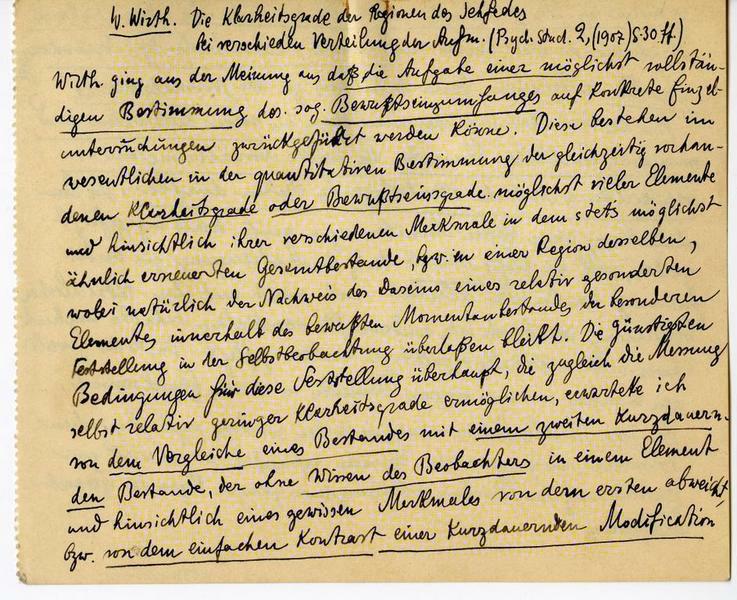 W. Wirth. Die Klarheitsgrade der Regionen des Sehfeldes
bei verschieden Verteilung der Aufm. (Psych. Stud. 2, (1907) S. 30 ff.)
Wirth ging aus der Meinung aus daß die Aufgabe einer möglichst vollstän-
digen Bestimmung des sog. Bewußtseinsumfanges auf konkrete Einzel-
untersuchungen zurückgeführt werden könne. Diese bestehen im
wesentlichen in der quantitativen Bestimmung der gleichzeitig vorhan-
denen Klarheitsgrade oder Bewußtseinsgrade möglichst vieler Elemente
und hinsichtlich ihrer verschiedenen Merkmale in dem stets möglichst
ähnlich erneuerten Gesamtbestande, bzw. in einer Region desselben,
wobei natürlich der Nachweis des Daseins eines relativ gesonderten
Elementes innerhalb des bewußten Momentanbestandes der besonderen
Feststellung in der Selbstbeobachtung überlaßen bleibt. Die günstigsten
Bedingungen für diese Feststellung überhaupt, die zugleich die Messung
selbst relativ geringer Klarheitsgrade ermöglichen, erwartete ich
von dem Vergleiche eines Bestandes mit einem zweiten kurzdauern-
den Bestande, der ohne Wissen des Beobachters in einem Element
und hinsichtlich eines gewissen Merkmales von dem ersten abweicht,
bzw. von dem einfachen Kontrast einer kurzdauernden Modification